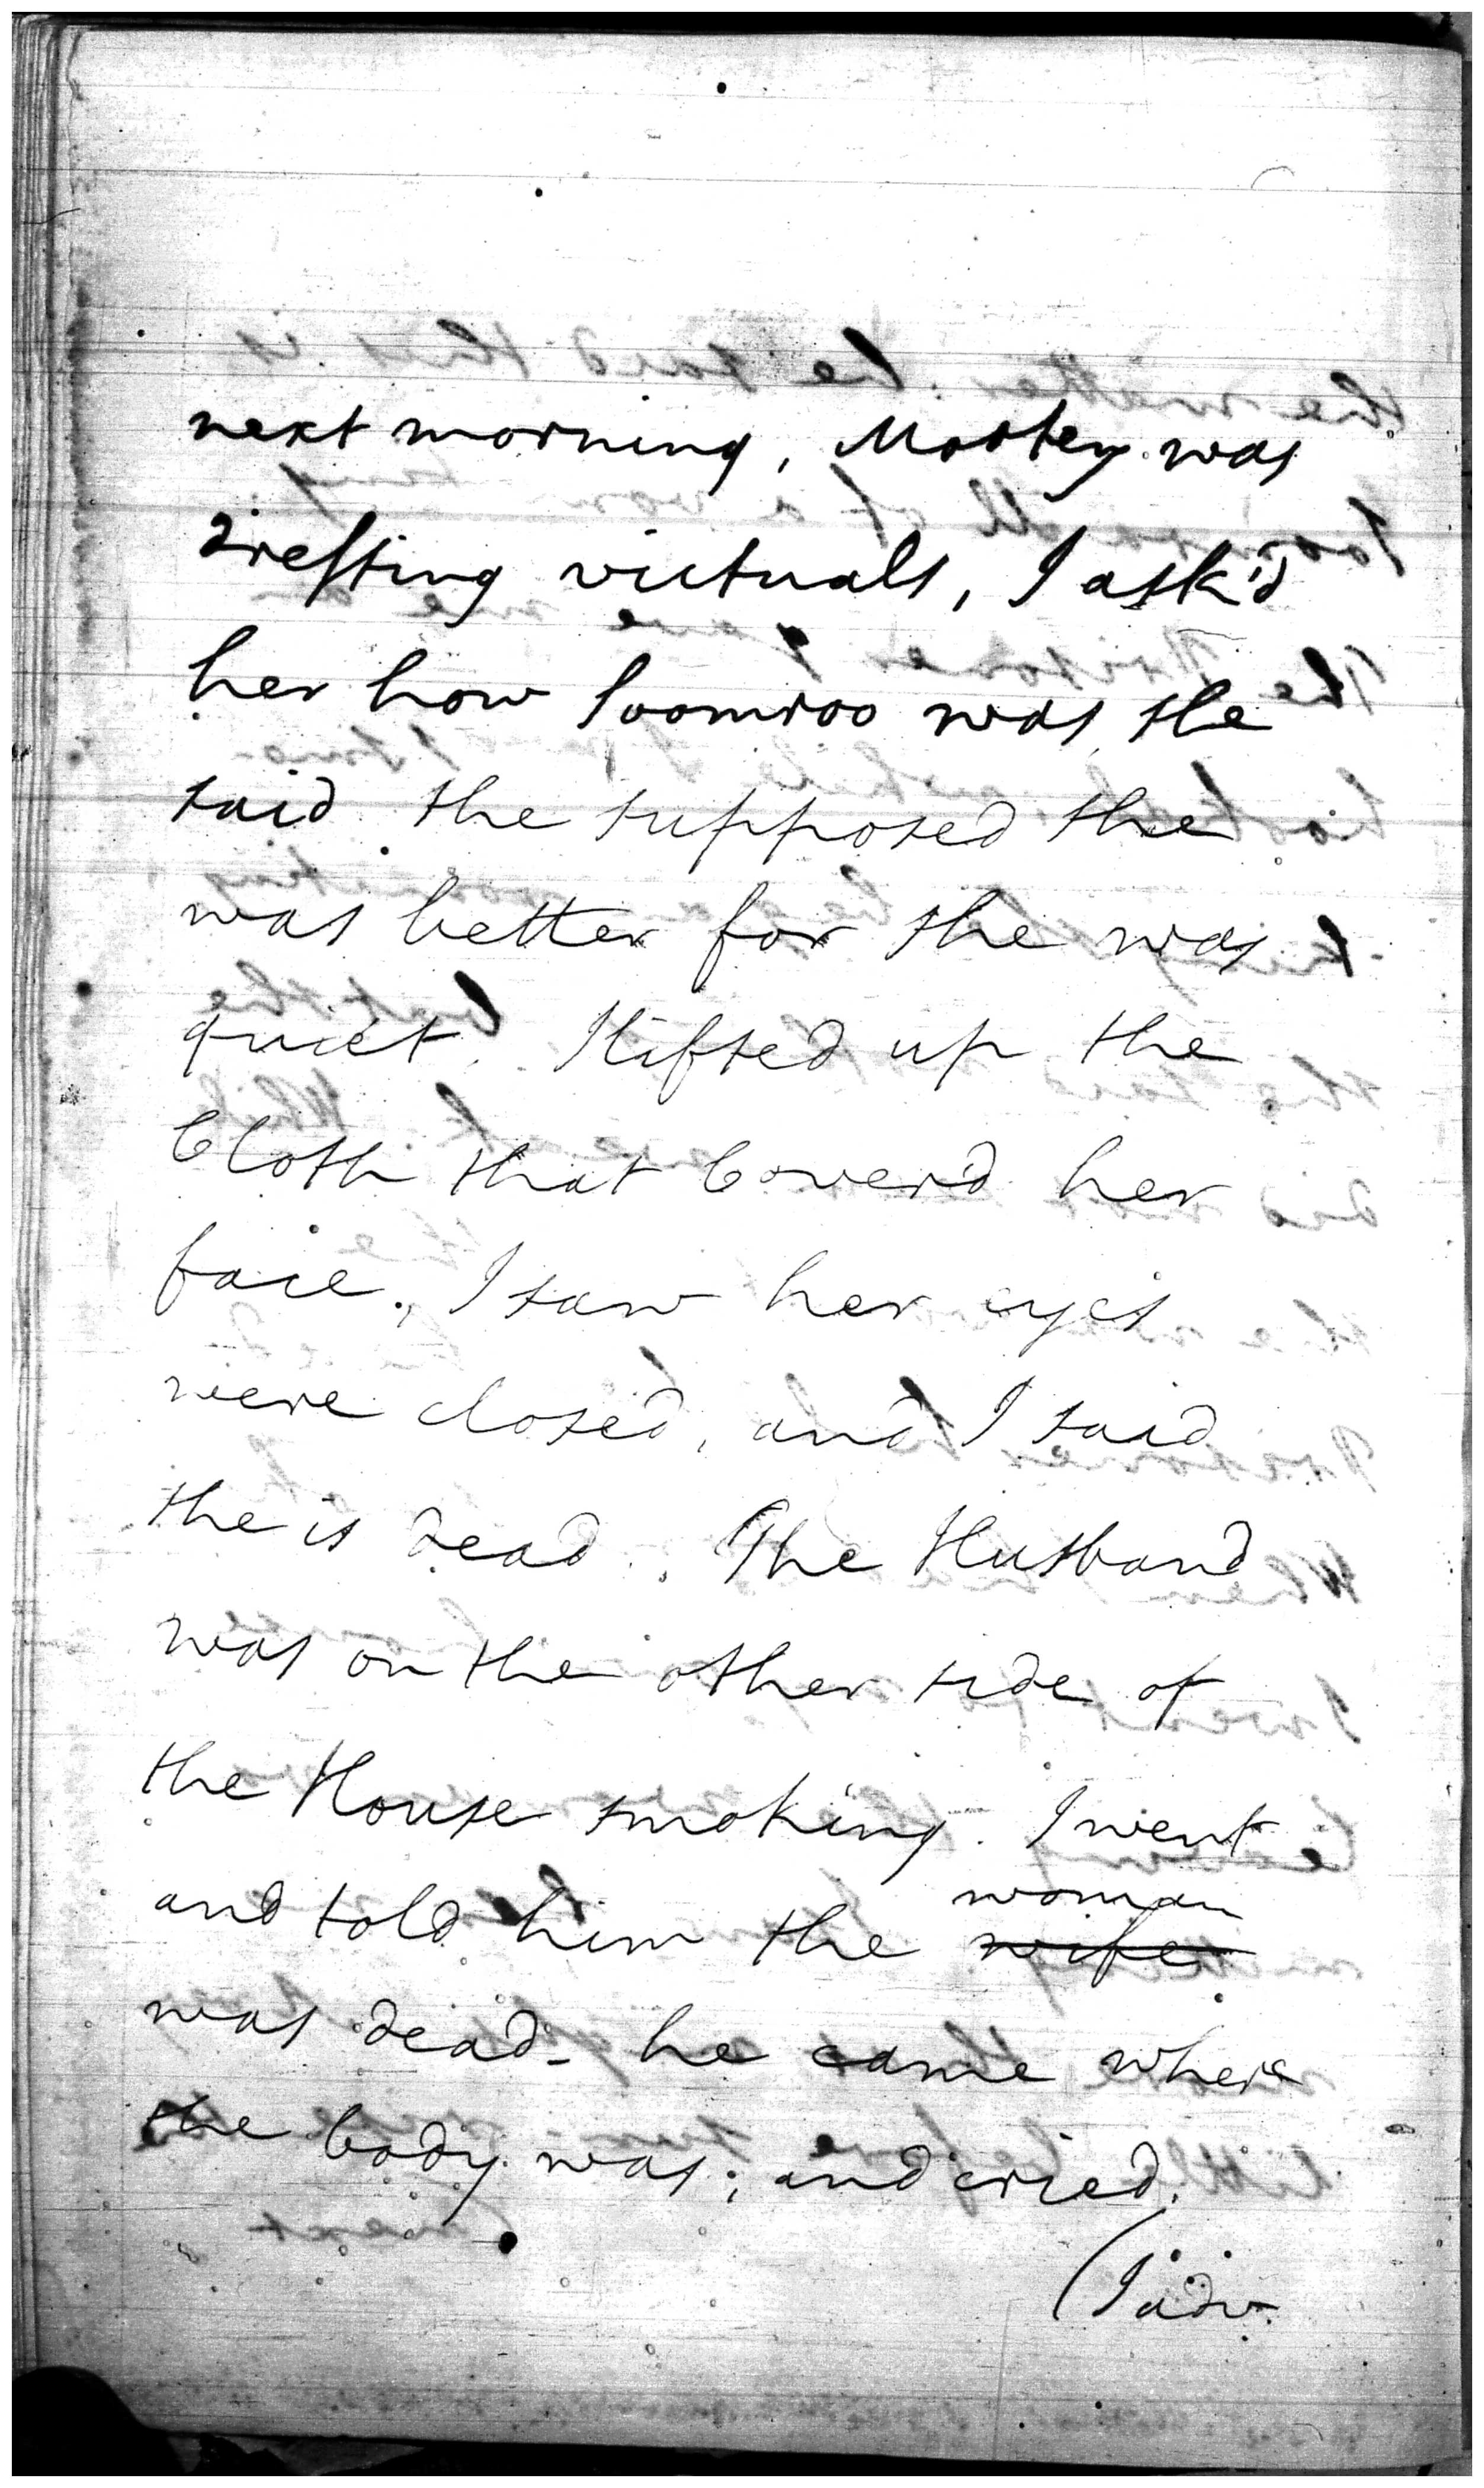 next morning, Mootey was
dressing victuals, I ask'd
her how Soomroo was, she
said she supposed she
was better for she was
quiet. I lifted up the
Cloth that Cover'd her
face, I saw her eyes
were closed, and I said
she is dead. The Husband
was on the other side of
the House smoking. I went
and told him the wife woman
was dead - he came where
the body was; and cried.
(I adv